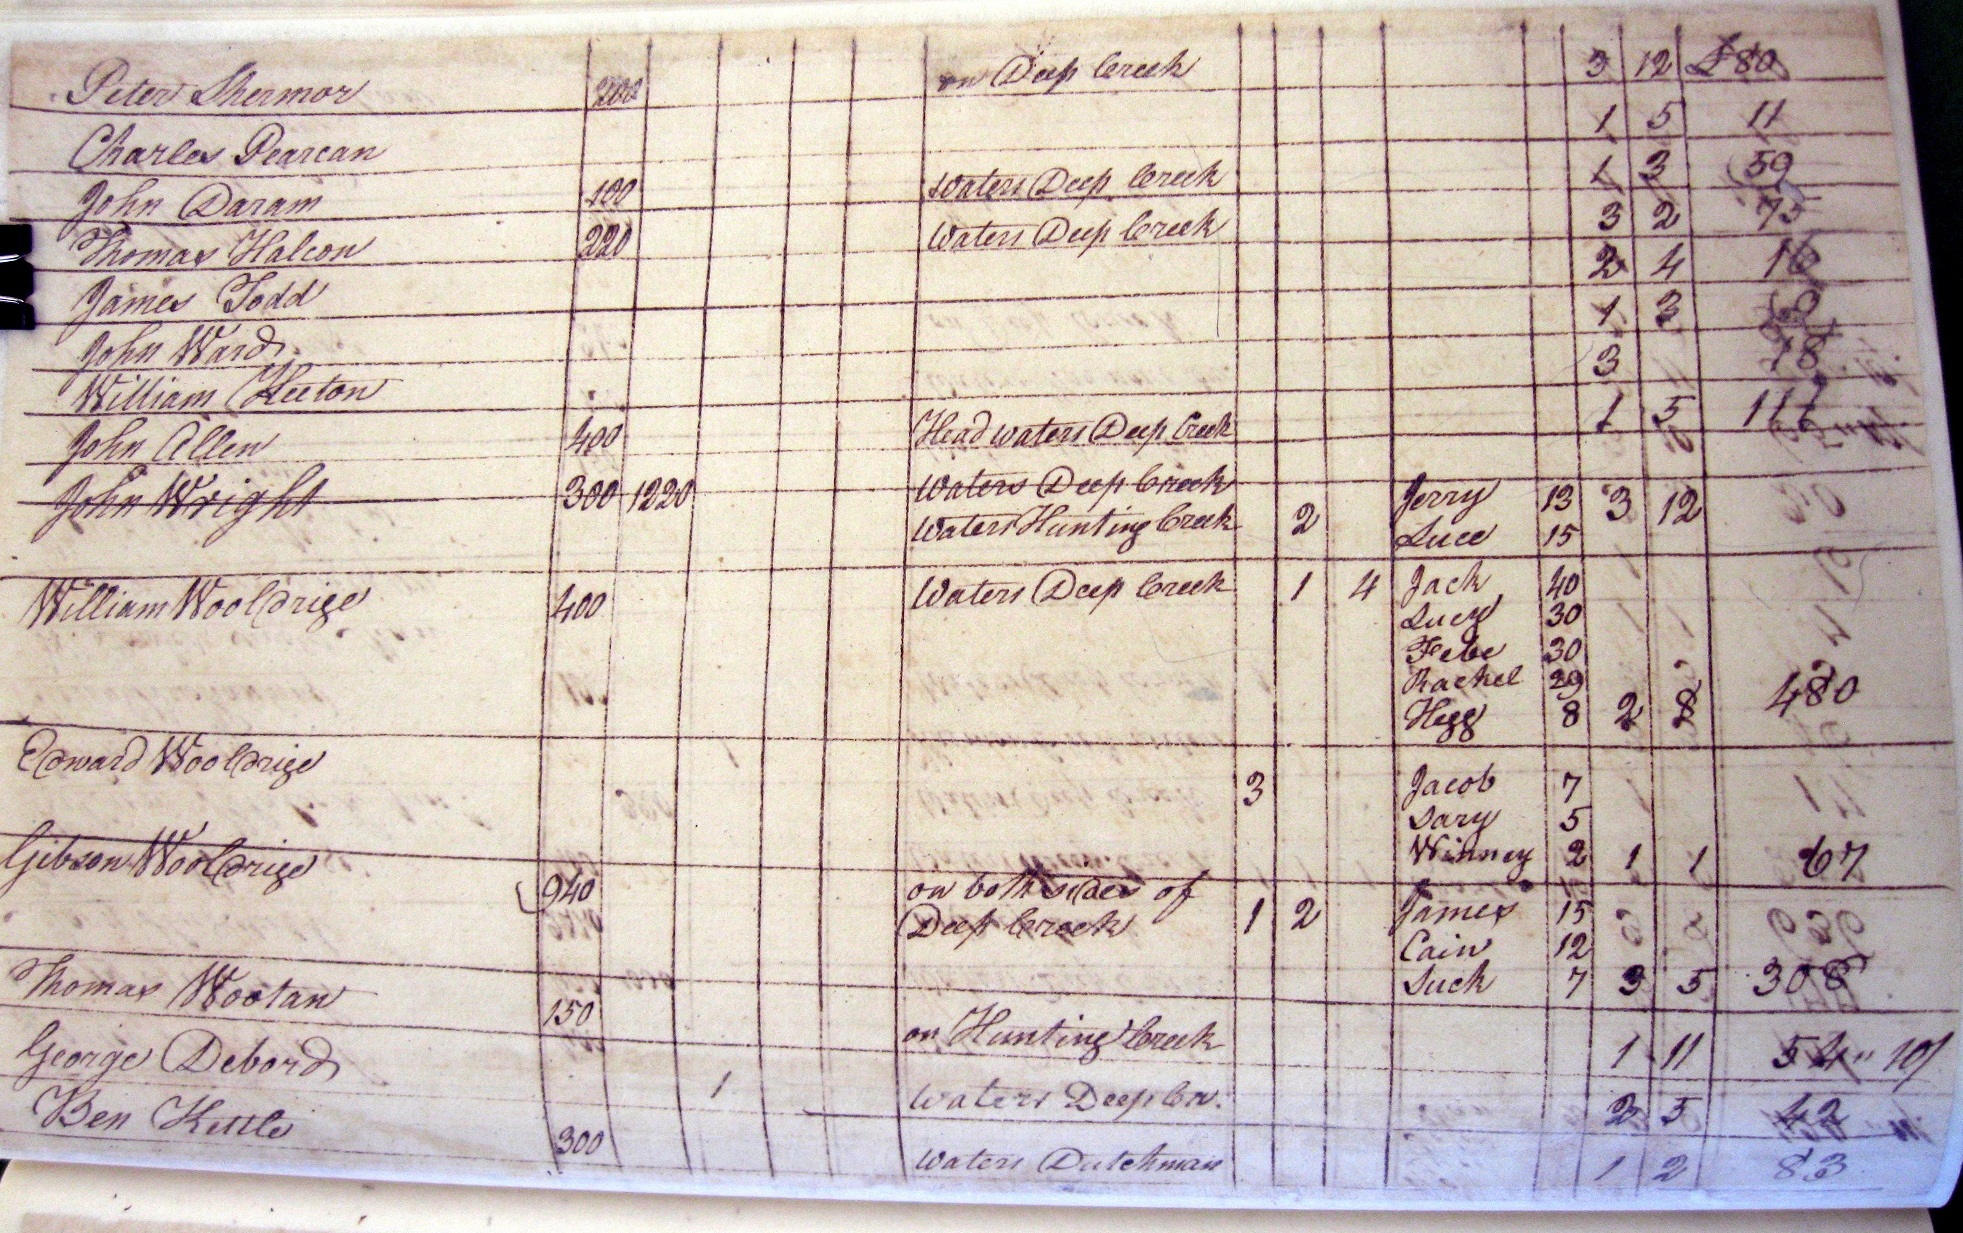 Peter Shermor 200 on Deep Creek 3 12 £80
Charles Pearcan 1 5 11
John Daram 100 Waters Deep Creek 1 3 59
Thomas Halcon 220 Waters Deep Creek 3 2 75
James Todd 2 4 16
John Ward 1 3
William Keeton 3 18
John Allen 400 Head waters Deep Creek 1 5 116
John Wright 300 1220 Waters Deep Creek Jerry 13 3 12
Waters Hunting Creek 2 Luce 15
William Wooldrige 400 Waters Deep Creek 1 4 Jack 40
Lucy 30
Febe 30
Rachel 29
Hegg 8 2 8 480
Edward Wooldrige 3 Jacob 7
Sary 5
Winney 2 1 1 67
Gibson Wooldrige 940 on both sides of
Deep Creek 1 2 James 15
Cain 12
Suck 7 3 5 308
Thomas Wootan 150 on Hunting Creek 1 11 54 " 10/
George Debord 1 Waters Deep Cr. 2 5 42
Ben Kettle 300 Waters Dutchman 1 2 83